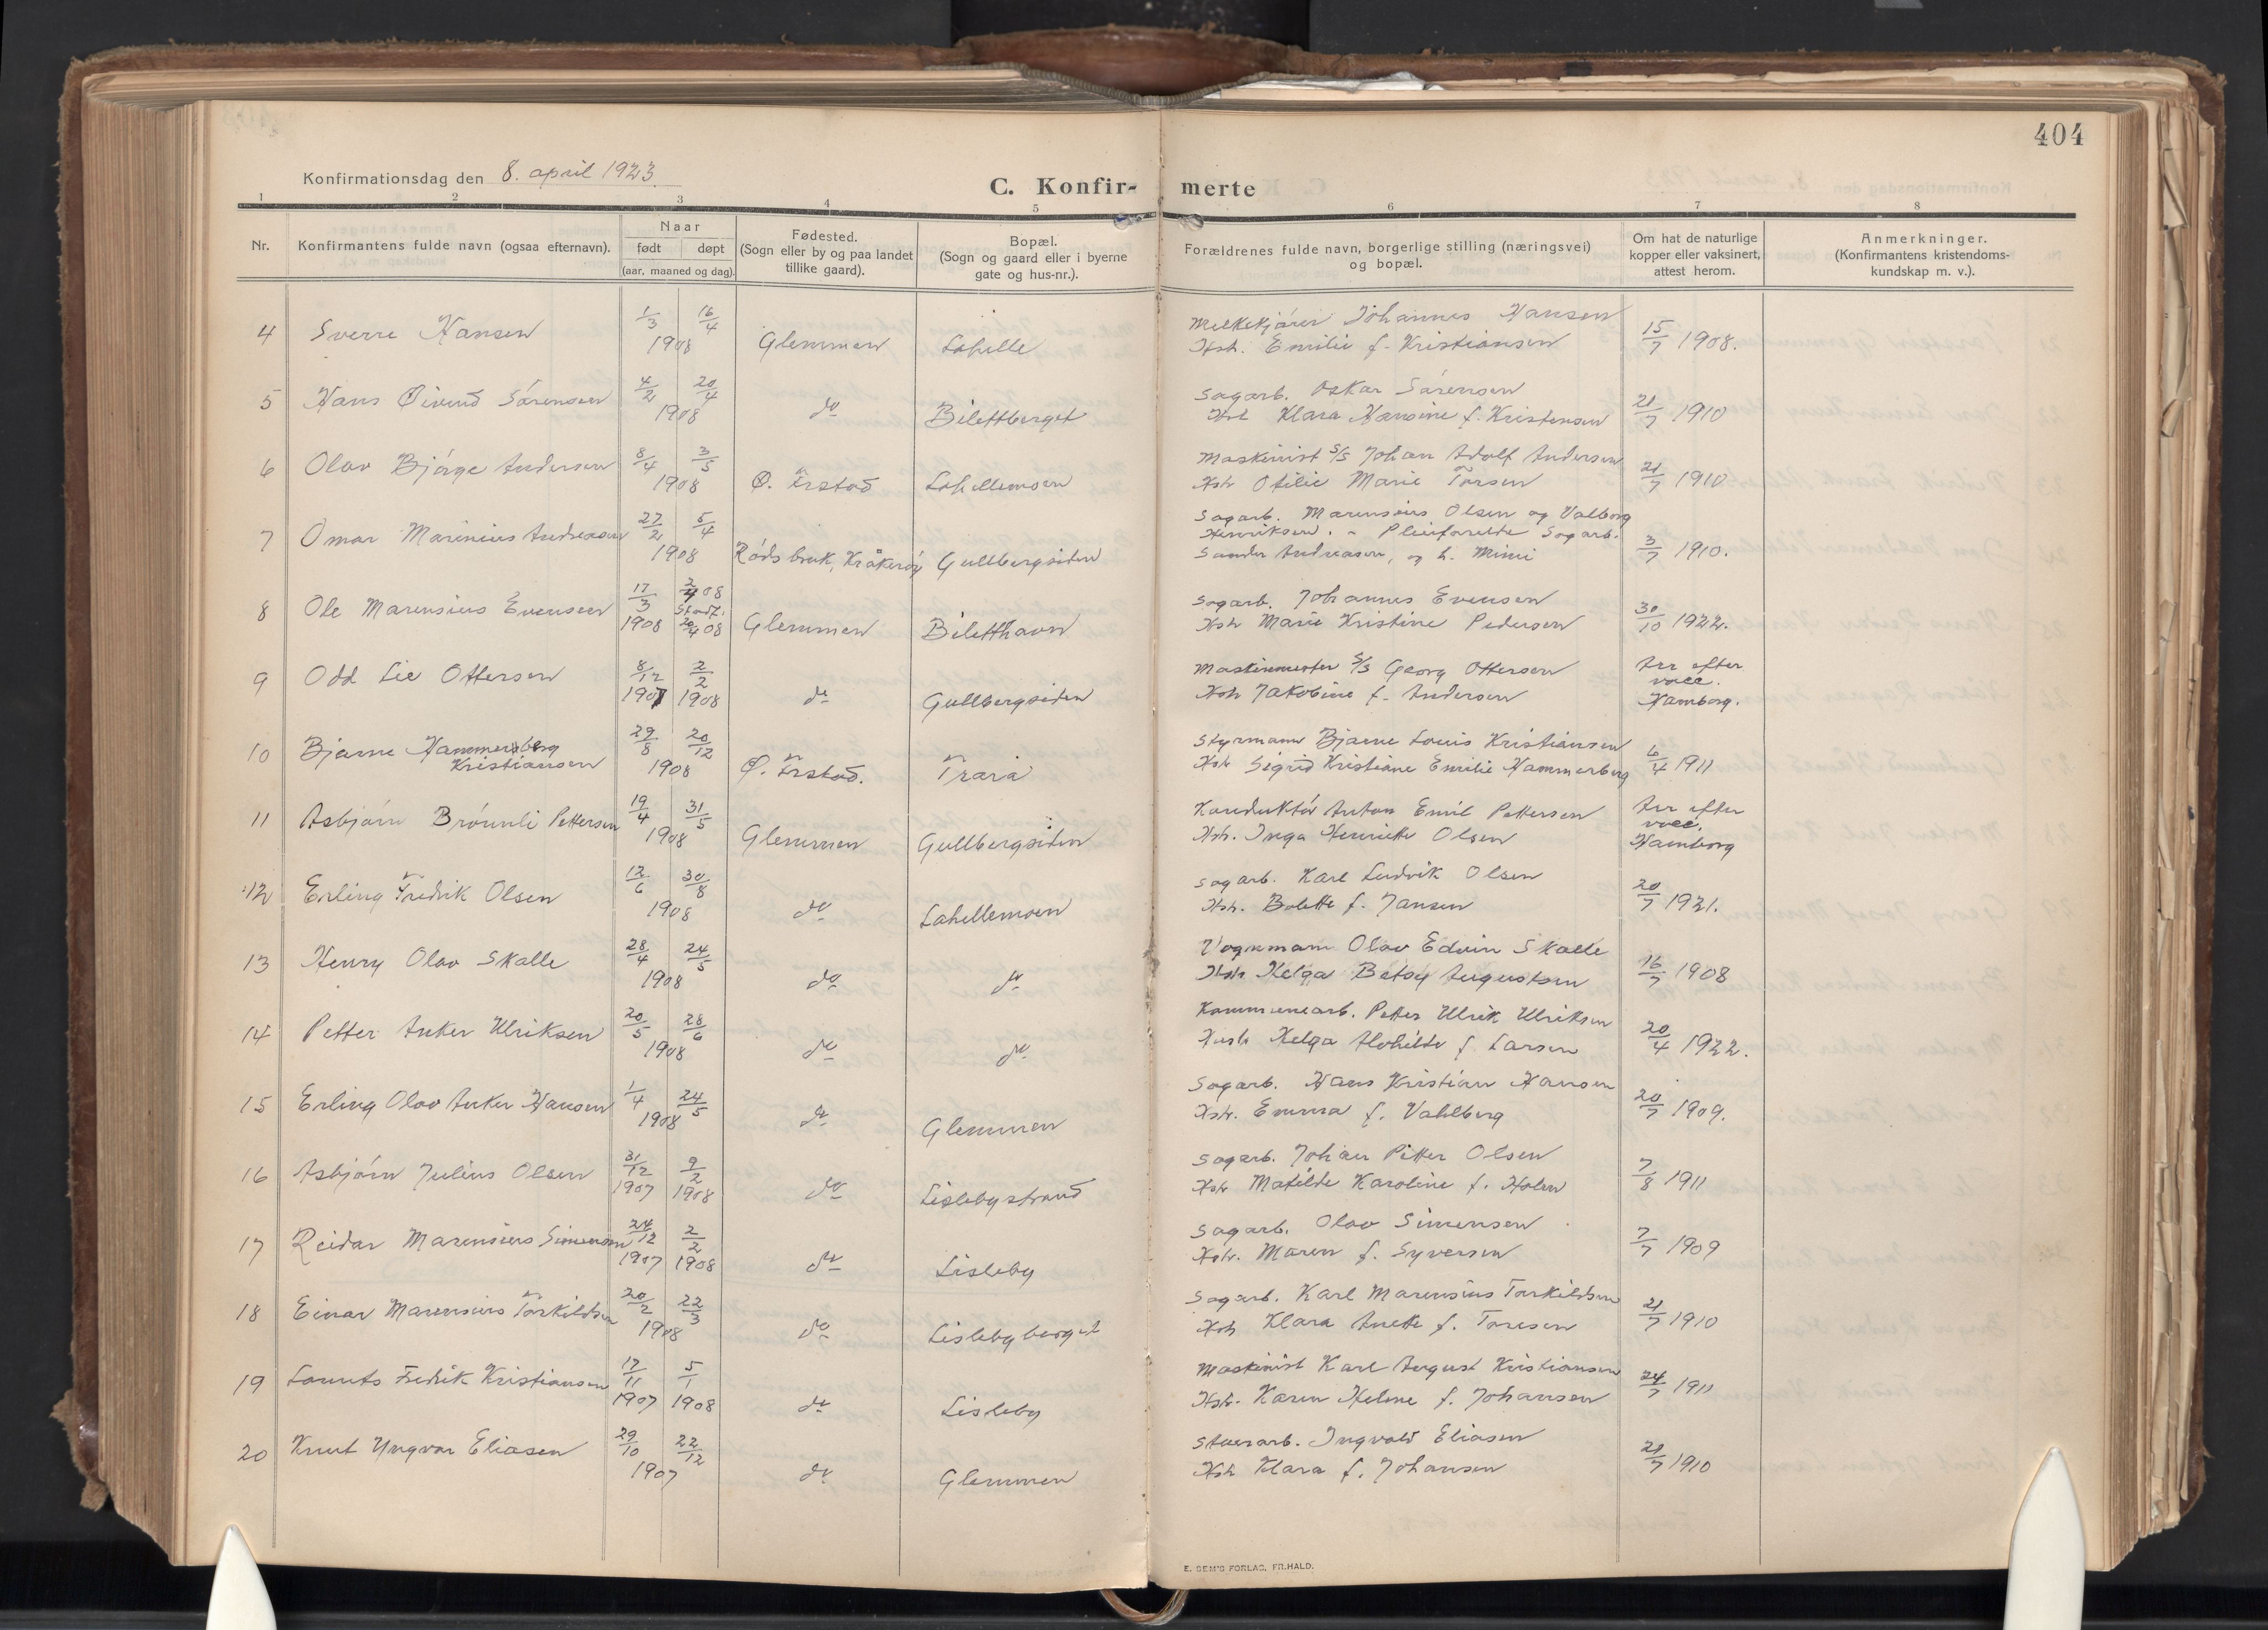 404
Konfirmationsdag den 8. april 1923.
C. Konfir- merte
1 2 3 4 5 6 7 8
Nr. Konfirmantens fulde navn (ogsaa efternavn). Naar født døpt (aar, maaned og dag). Fødested. (Sogn eller by og paa landet tillike gaard). Bopæl. (Sogn og gaard eller i byerne gate og hus-nr.). Forældrenes fulde navn, borgerlige stilling (næringsvei) og bopæl. Om hat de naturlige kopper eller vaksinert, attest herom. Anmerkninger. (Konfirmantens kristendoms- kundskap m. v.).
4 Sverre Hansen 1/3 16/4 1908 Glemmen Lahelle Melkekjører Johannes Hansen
Hstr. Emilie f. Kristiansen 15/7 1908.
5 Hans Øivind Sørensen 4/2 20/4 1908 do Bilettberget Sagarb. Oskar Sørensen
Hstr Klara Hansine f. Kristensen 21/7 1910
6 Olav Bjørge Andersen 8/4 3/5 1908 Ø. Frstad Lahellemoen Maskinist S/S Johan Adolf Andersen
Hstr Otilie Marie Torsen 21/7 1910
7 Omar Marinius Andreasen 27/2 5/4 1908 Røds bruk, Kråkerøy Gullbergsiden Sagarb. Marensius Olsen og Valborg
Henriksen. - Pleieforeldre Sagarb.
Sander Andreasen, og h. Mimi 3/7 1910.
8 Ole Marensius Evensen 17/3 1908 2/4 08 Stadf. 20/4 08 Glemmen Biletthavn Sagarb. Johannes Evensen
Hstr Marie Kristine Pedersen 30/10 1922.
9 Odd Lie Ottersen 8/12 1907 2/2 1908 do Gullbergsiden Maskinmester S/S Georg Ottersen
Hstr Jakobine f. Andersen Arr efter vacc. Hamborg.
10 Bjarne Hammersberg Kristiansen 29/8 20/12 1908 Ø. Frstad. Trara Styrmann Bjarne Louis Kristiansen
Hstr Sigrid Kristiane Emilie Hammerberg 6/4 1911
11 Asbjørn Brønnli Pettersen 19/4 31/5 1908 Glemmen Gullbergsiden Konduktør Anton Emil Pettersen
Hstr. Inga Henriette Olsen Arr efter vacc. Hamborg
12 Erling Fredrik Olsen 12/6 30/8 1908 do Lahellemoen Sagarb. Karl Ludvik Olsen
Hstr. Bolette f. Jansen 20/7 1921.
13 Henry Olav Skalle 28/4 24/5 1908 do do Vognmann Olav Edvin Skalle
Hstr Helga Betsy Augustsen 16/7 1908
14 Petter Anker Ulriksen 20/5 28/6 1908 do do Kommunearb. Petter Ulrik Ulriksen
Hustr Helga Alvhilde f. Larsen 20/4 1922.
15 Erling Olav Anker Hansen 1/4 24/5 1908 do Glemmen Sagarb. Hans Kristian Hansen
Hstr. Emma f. Vahlberg 20/7 1909.
16 Asbjørn Julius Olsen 31/12 1907 9/2 1908 do Lislebystrand Sagarb. Johan Petter Olsen
Hstr Matilde Karoline f. Holm 7/8 1911
17 Reidar Marensius Simensen 24/12 1907 2/2 1908 do Lisleby Sagarb. Olav Simensen
Hstr. Maren f. Syversen 7/7 1909
18 Einar Marensius Torkildsen 20/2 22/3 1908 do Lislebyberget Sagarb. Karl Marensius Torkildsen
Hstr Klara Anette f. Toresen 21/7 1910
19 Laurits Fredrik Kristiansen 17/11 1907 5/1 1908 do Lisleby Maskinist Karl August Kristiansen
Hstr. Karen Helene f. Johansen 24/7 1911
20 Knut Yngvar Eliasen 29/10 22/12 1907 do Glemmen Stuerarb. Ingvald Eliasen
Hstr Klara f. Johansen 21/7 1910
E. SEM'S FORLAG, FR.HALD.